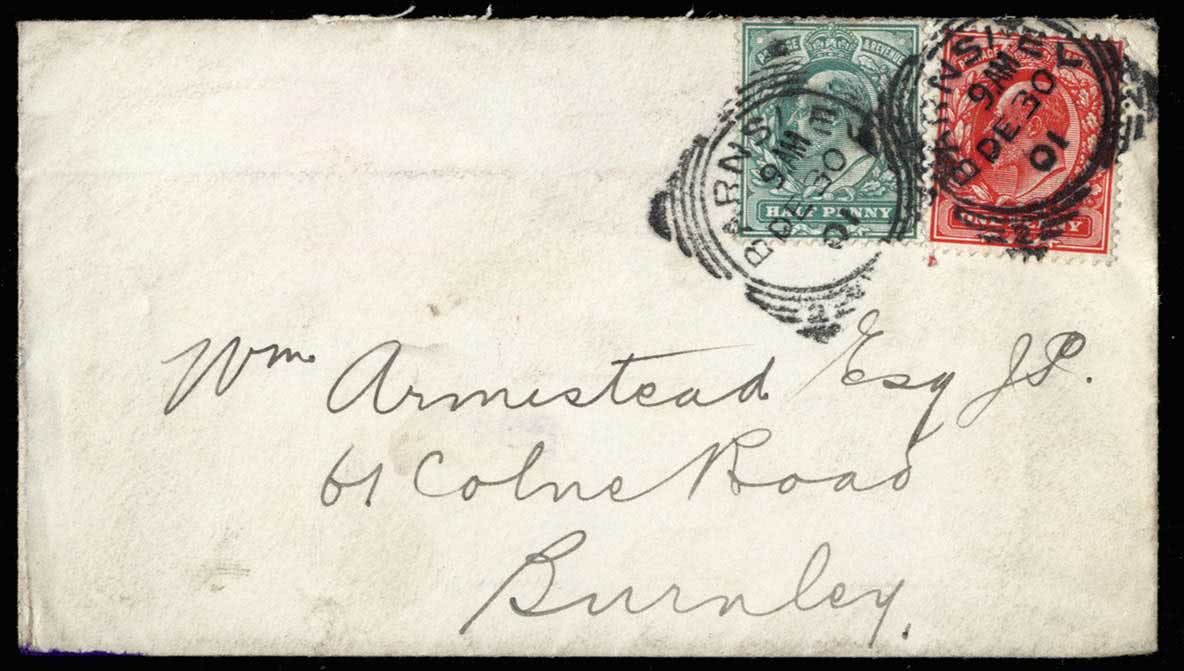 POSTAGE & REVENUE
HALF PENNY
BARNSLEY
9 AM
DE 30
01
POSTAGE & REVENUE
ONE PENNY
BARNSLEY
9 AM
DE 30
01
Wm Armistead Esq J.P.
61 Colne Road
Burnley.